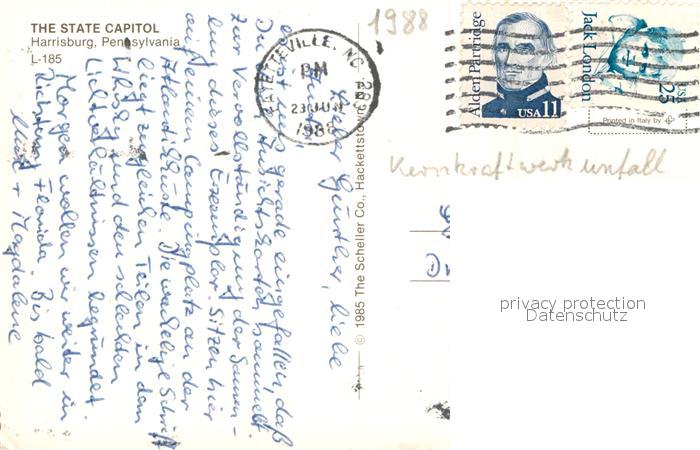 THE STATE CAPITOL
Harrisburg, Pennsylvania
L-185
1988
FAYETTEVILLE, NC 283
PM
23 JUN
1988
Alden Partridge
USA 11
Jack London
USA 25
Printed in Italy by
Kernkraftwerkunfall
© 1985 The Scheller Co., Hackettstown
Lieber Günther, liebe
gerade eingefallen, daß
Du Ansichtskarten sammelst.
Zur Vervollständigung der Samm-
lung dieses Exemplar. Sitzen hier
auf einem Campingplatz an der
Atlantikküste. Die wackelige Schrift
liegt zu gleichen Teilen in dem
Whisky und den schlechten
Lichtverhältnissen begründet.
Morgen wollen wir weiter in
Richtung Florida. Bis bald
+ Magdalene
privacy protection
Datenschutz